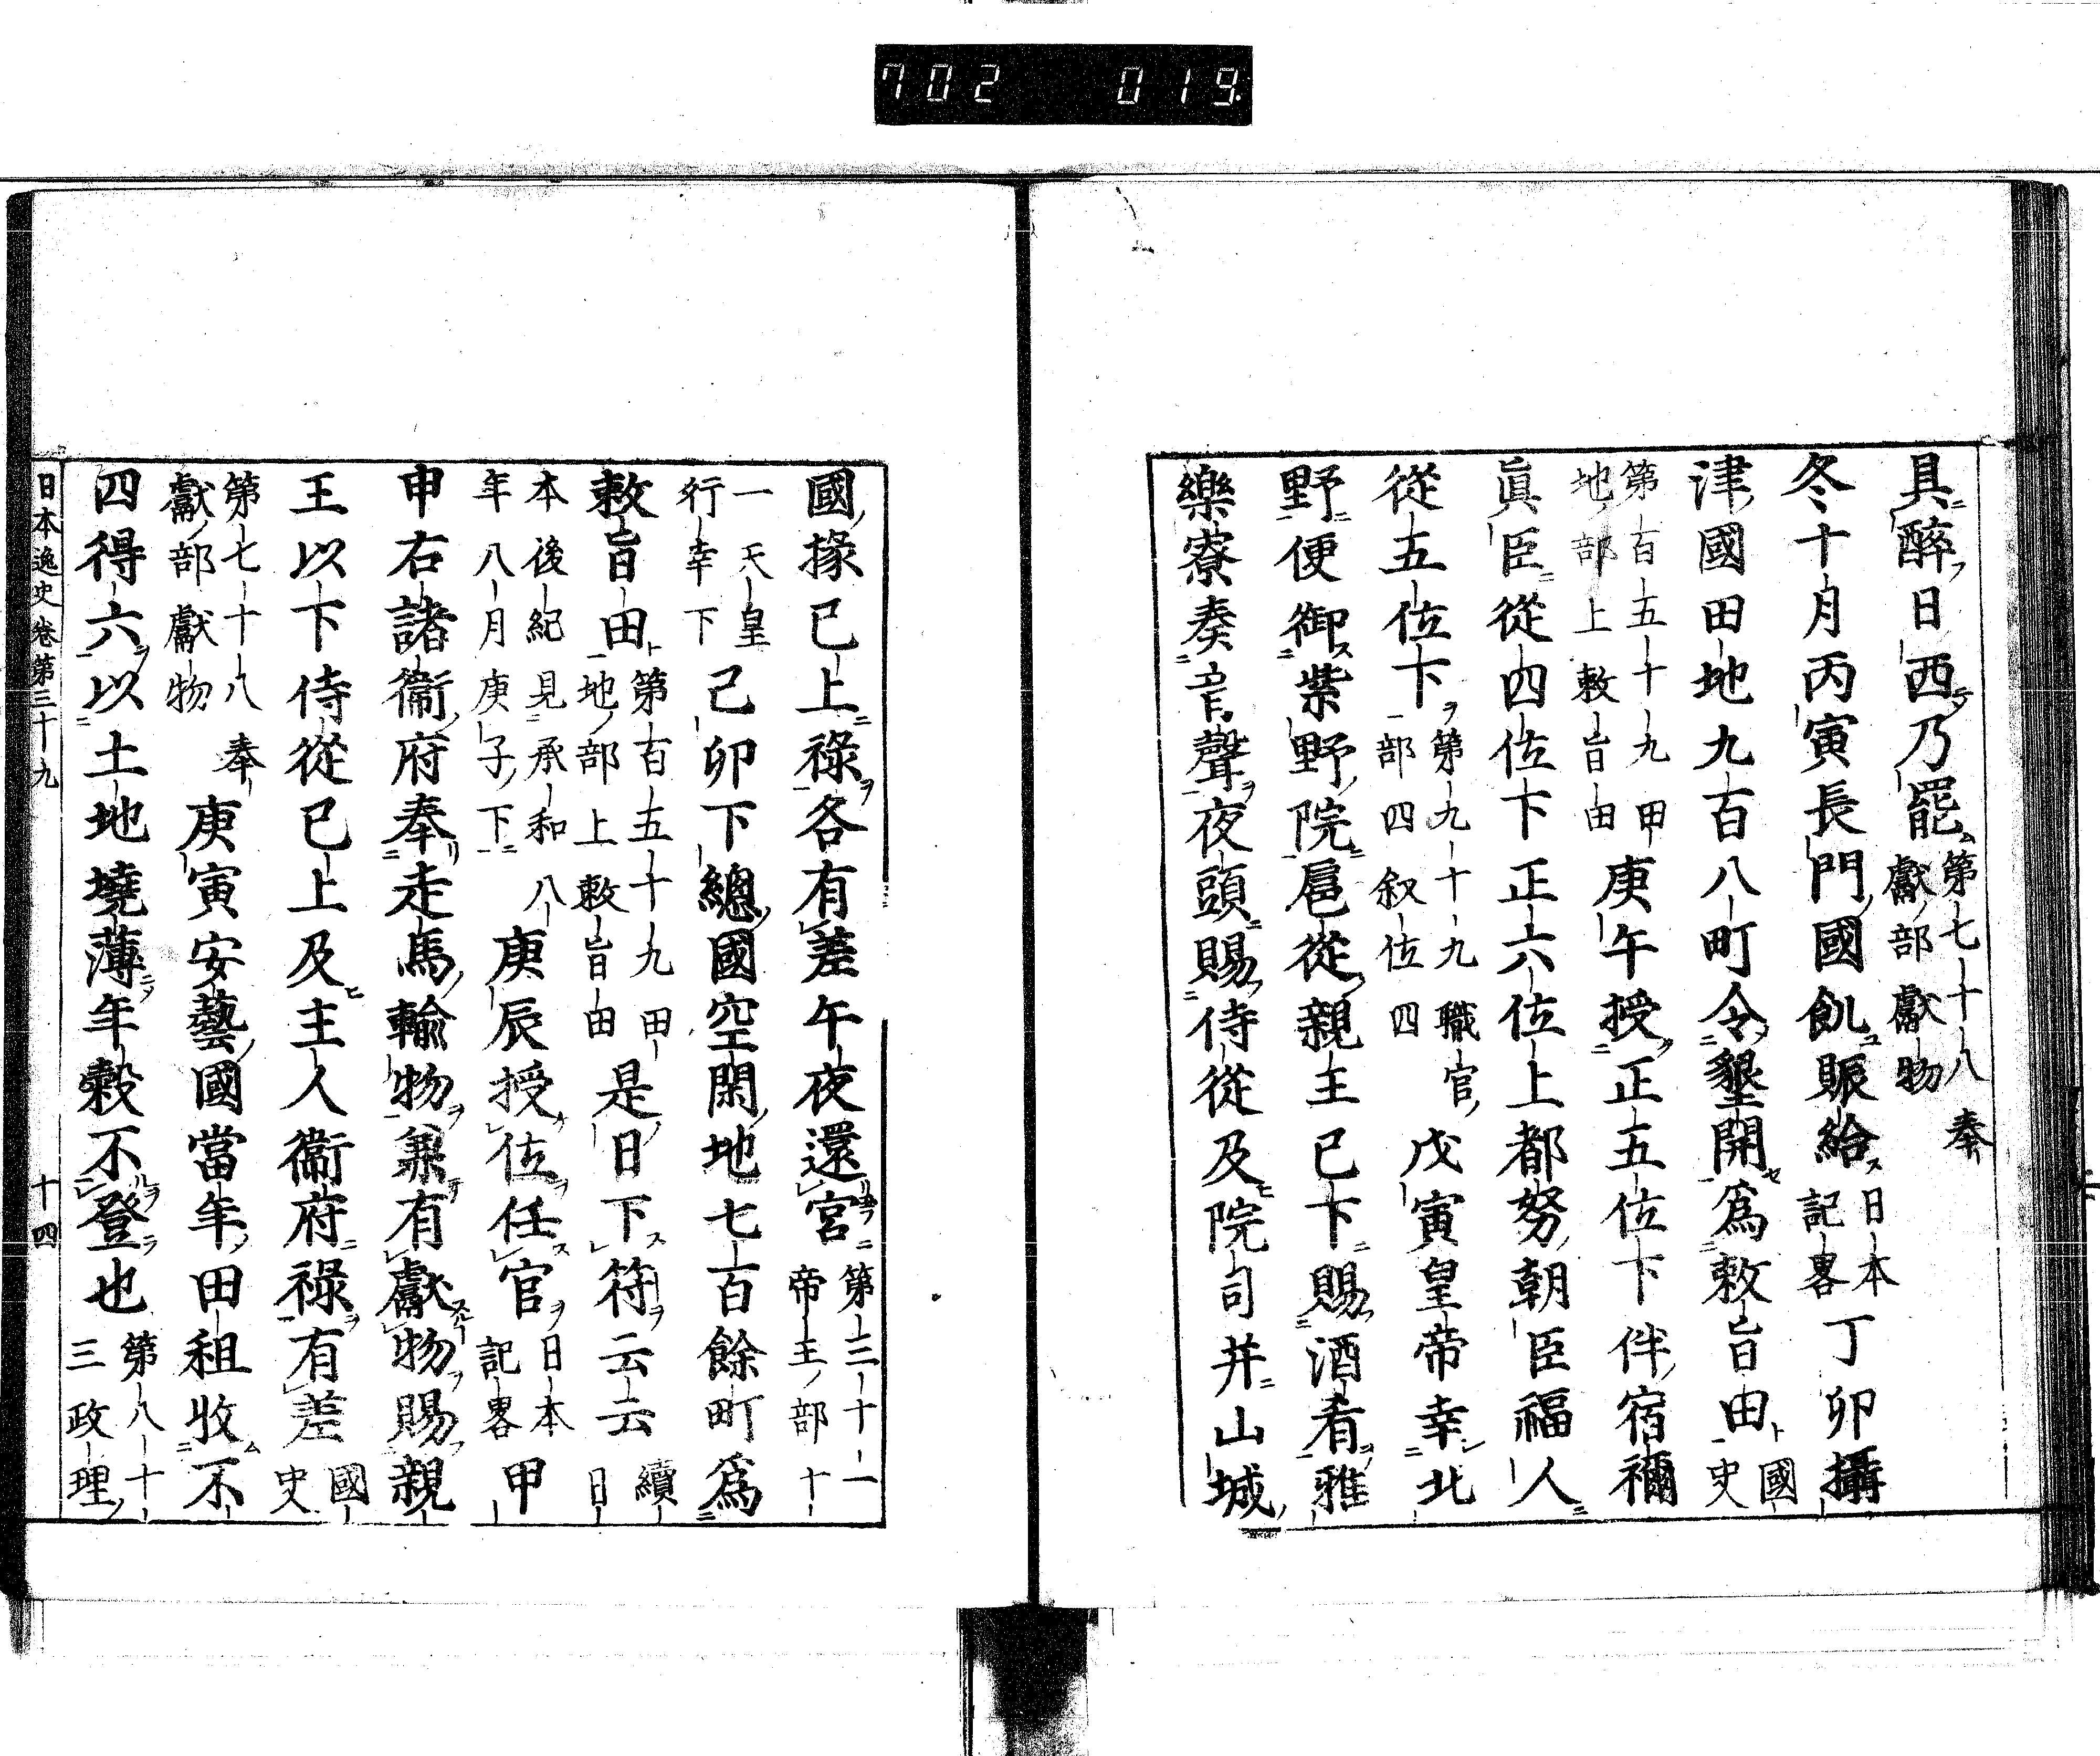 702 019
具醉日西乃罷第七十八奉獻部獻物
冬十月丙寅長門國飢賑給日本記畧丁卯攝
津國田地九百八町令墾開爲敕旨田國史
第百五十九田地部上敕旨田庚午授正五位下伴宿禰
眞臣從四位下正六位上都努朝臣福人
從五位下第九十九職官部四叙位四戊寅皇帝幸北
野便御紫野院扈從親王已下賜酒肴雅
樂寮奏音聲夜頭賜侍從及院司并山城
國掾已上祿各有差午夜還宮第三十一帝王部十
一天皇行幸下己卯下總國空閑地七百餘町爲
敕旨田第百五十九田地部上敕旨田是日下符云云續日
本後紀見承和八年八月庚子下庚辰授位任官日本記畧甲
申右諸衞府奉走馬輸物兼有獻物賜親
王以下侍從已上及主人衞府祿有差國史
第七十八奉獻部獻物庚寅安藝國當年田租收不
四得六以土地墝薄年穀不登也第八十三政理
日本逸史卷第三十九 十四